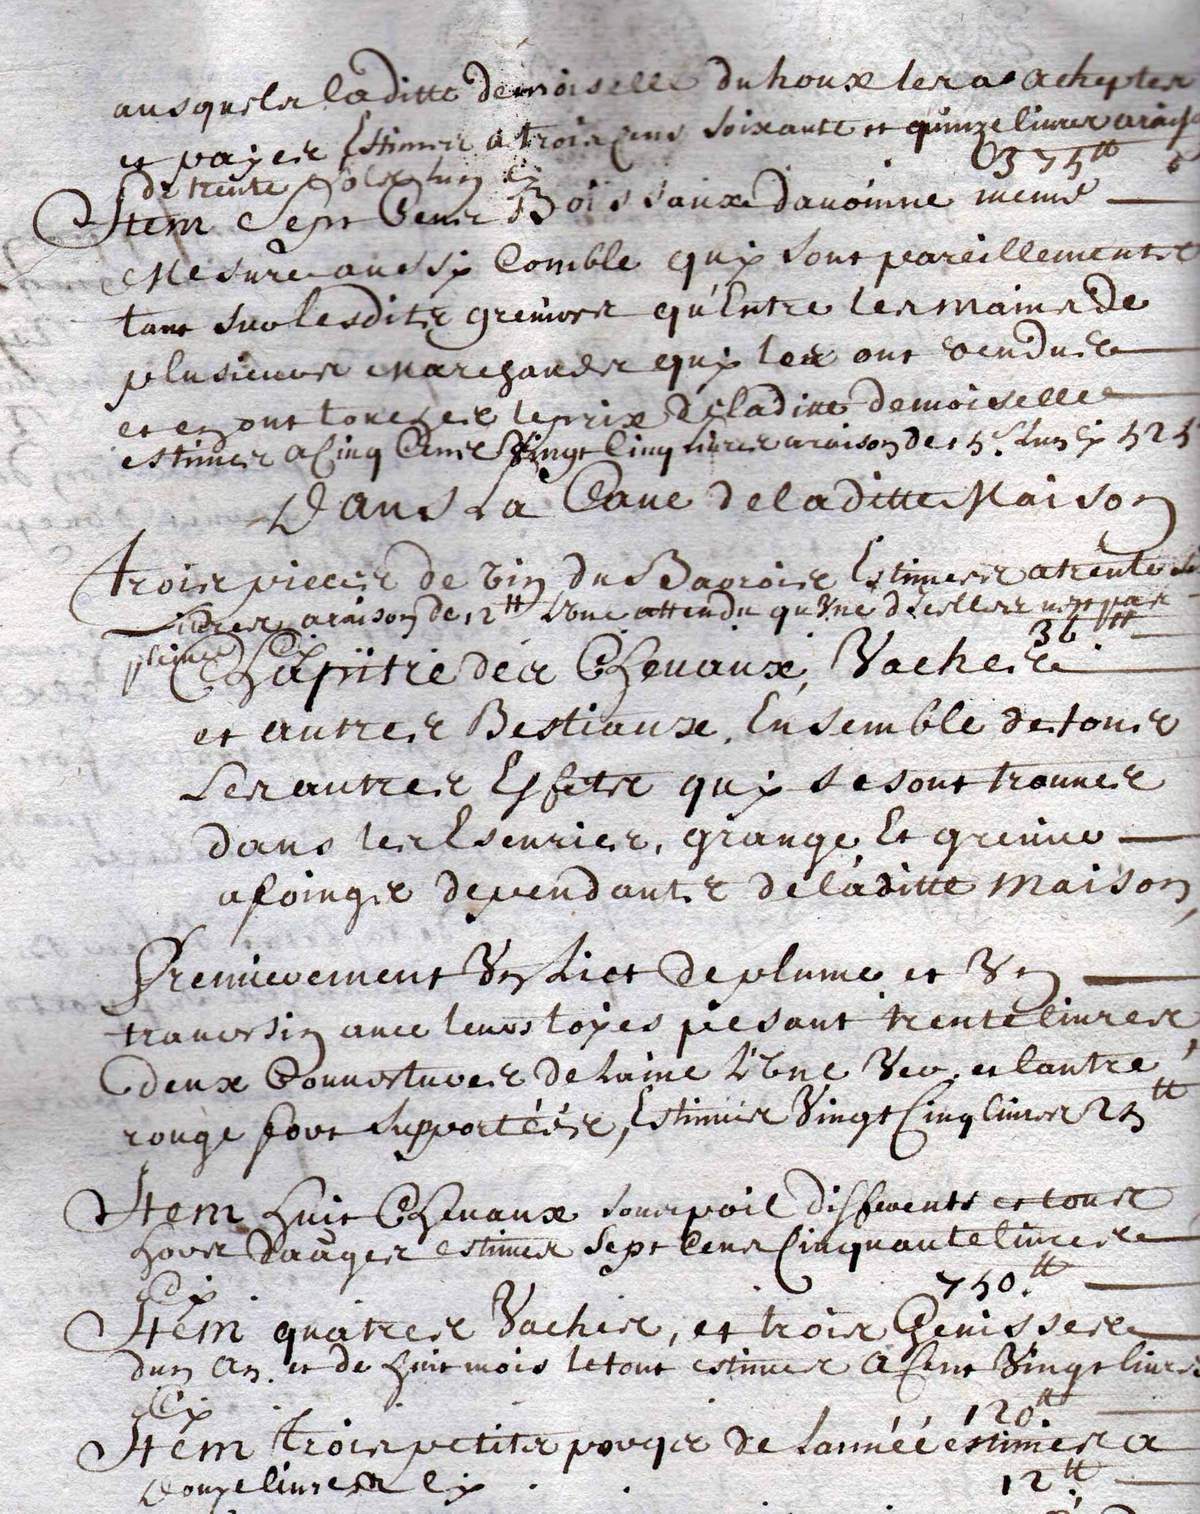 ausquels laditte demoiselle du houx les a acheptes
et payes Estimes a trois cens soixante et quinze livres a raison
de trente sols l'un cy 375tt
Item Sept Cens Boissaux davoinne meme
Mesure aussy Comble quy sont pareillement
tant sur lesdits greniers qu'Entre les mains de
plusieurs Marchands quy les ont vendus
et en ont touchez le prix de laditte demoiselle
estimes a Cinq Cens Vingt Cinq livres a raison de 15s. l'un cy 525
Dans La Cave de laditte Maison
trois pieces de vin du Barrois Estimees a trente six
livres a raison de 12tt l'une attendu qu'Une d'icelles n'est pas
pleine Cy 36tt
Chapitre des Chevaux, Vaches
et autres Bestiaux, Ensemble de tous
Les autres Effets quy se sont trouves
dans les Escuries, grange Et grenier
a foinges dependants de laditte Maison
Premierement Un Lict de plume et Un
traversin avec leurs toyes pesant trente livres
deux Couvertures de Laine L'Une Ver. et lautre
rouge fort Supportées, Estimes Vingt Cinq livres 25tt
Item huit Chevaux sous poil differents et tous
hors dauges estimes Sept Cens Cinquante livres
Cy 750.tt
Item quatres Vaches, et trois Genisses
dun an. et de huit mois le tout estimes a Cent Vingt livres
Cy 120.tt
Item trois petits porcqs de Lannéé estimes a
douze livres Cy . . 12.tt